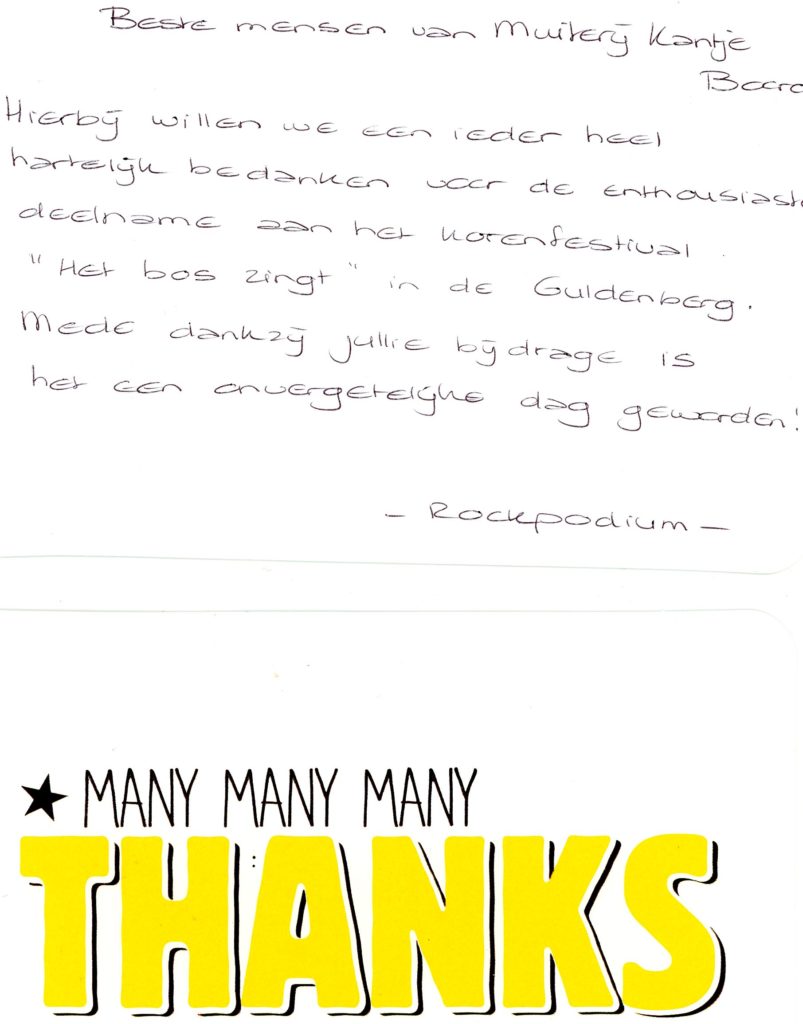 Beste mensen van Muiterij Kantje
Boord
Hierbij willen we een ieder heel
hartelijk bedanken voor de enthousiast
deelname aan het korenfestival
"Het bos zingt" in de Guldenberg.
Mede dankzij jullie bijdrage is
het een onvergetelijke dag geworden!
- Rockpodium -
★ MANY MANY MANY
THANKS